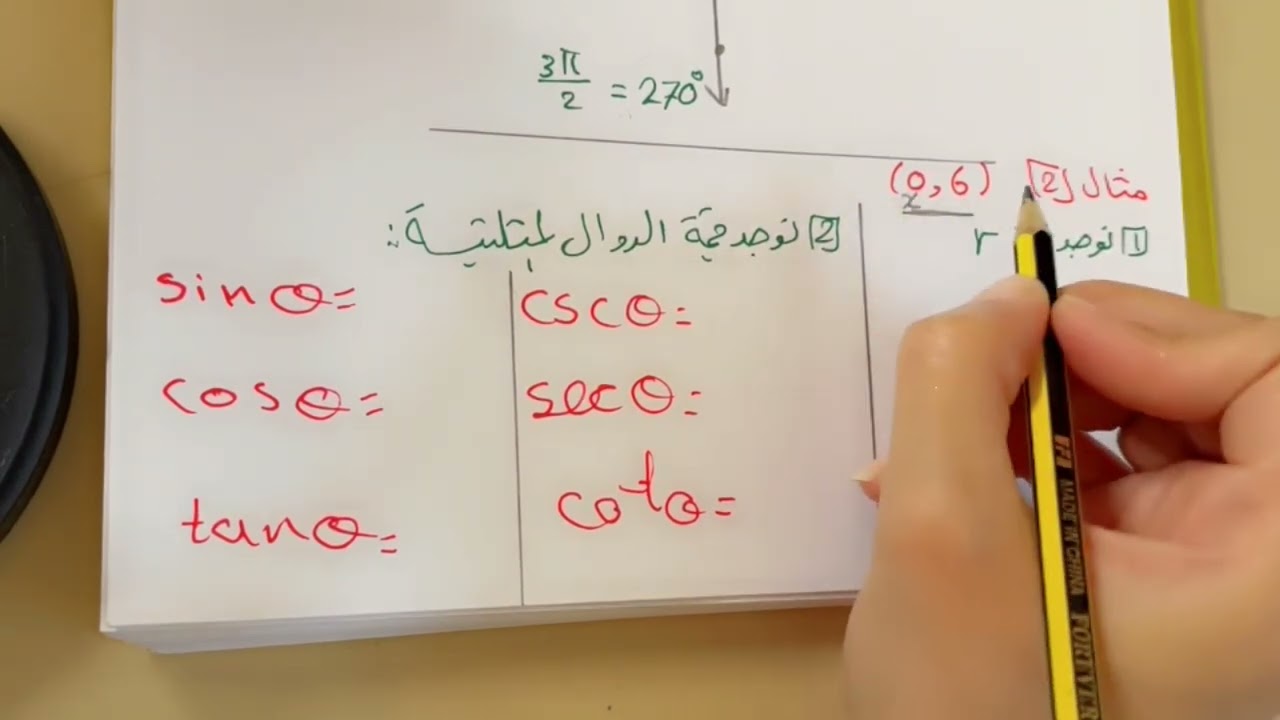 3π/2 = 270°
مثال [2] (0, 6)
x
[1] نوجد r
[2] نوجد قيمة الدوال المثلثية:
sin θ =
csc θ =
cos θ =
sec θ =
tan θ =
cot θ =
MADE IN CHINA FOREVER